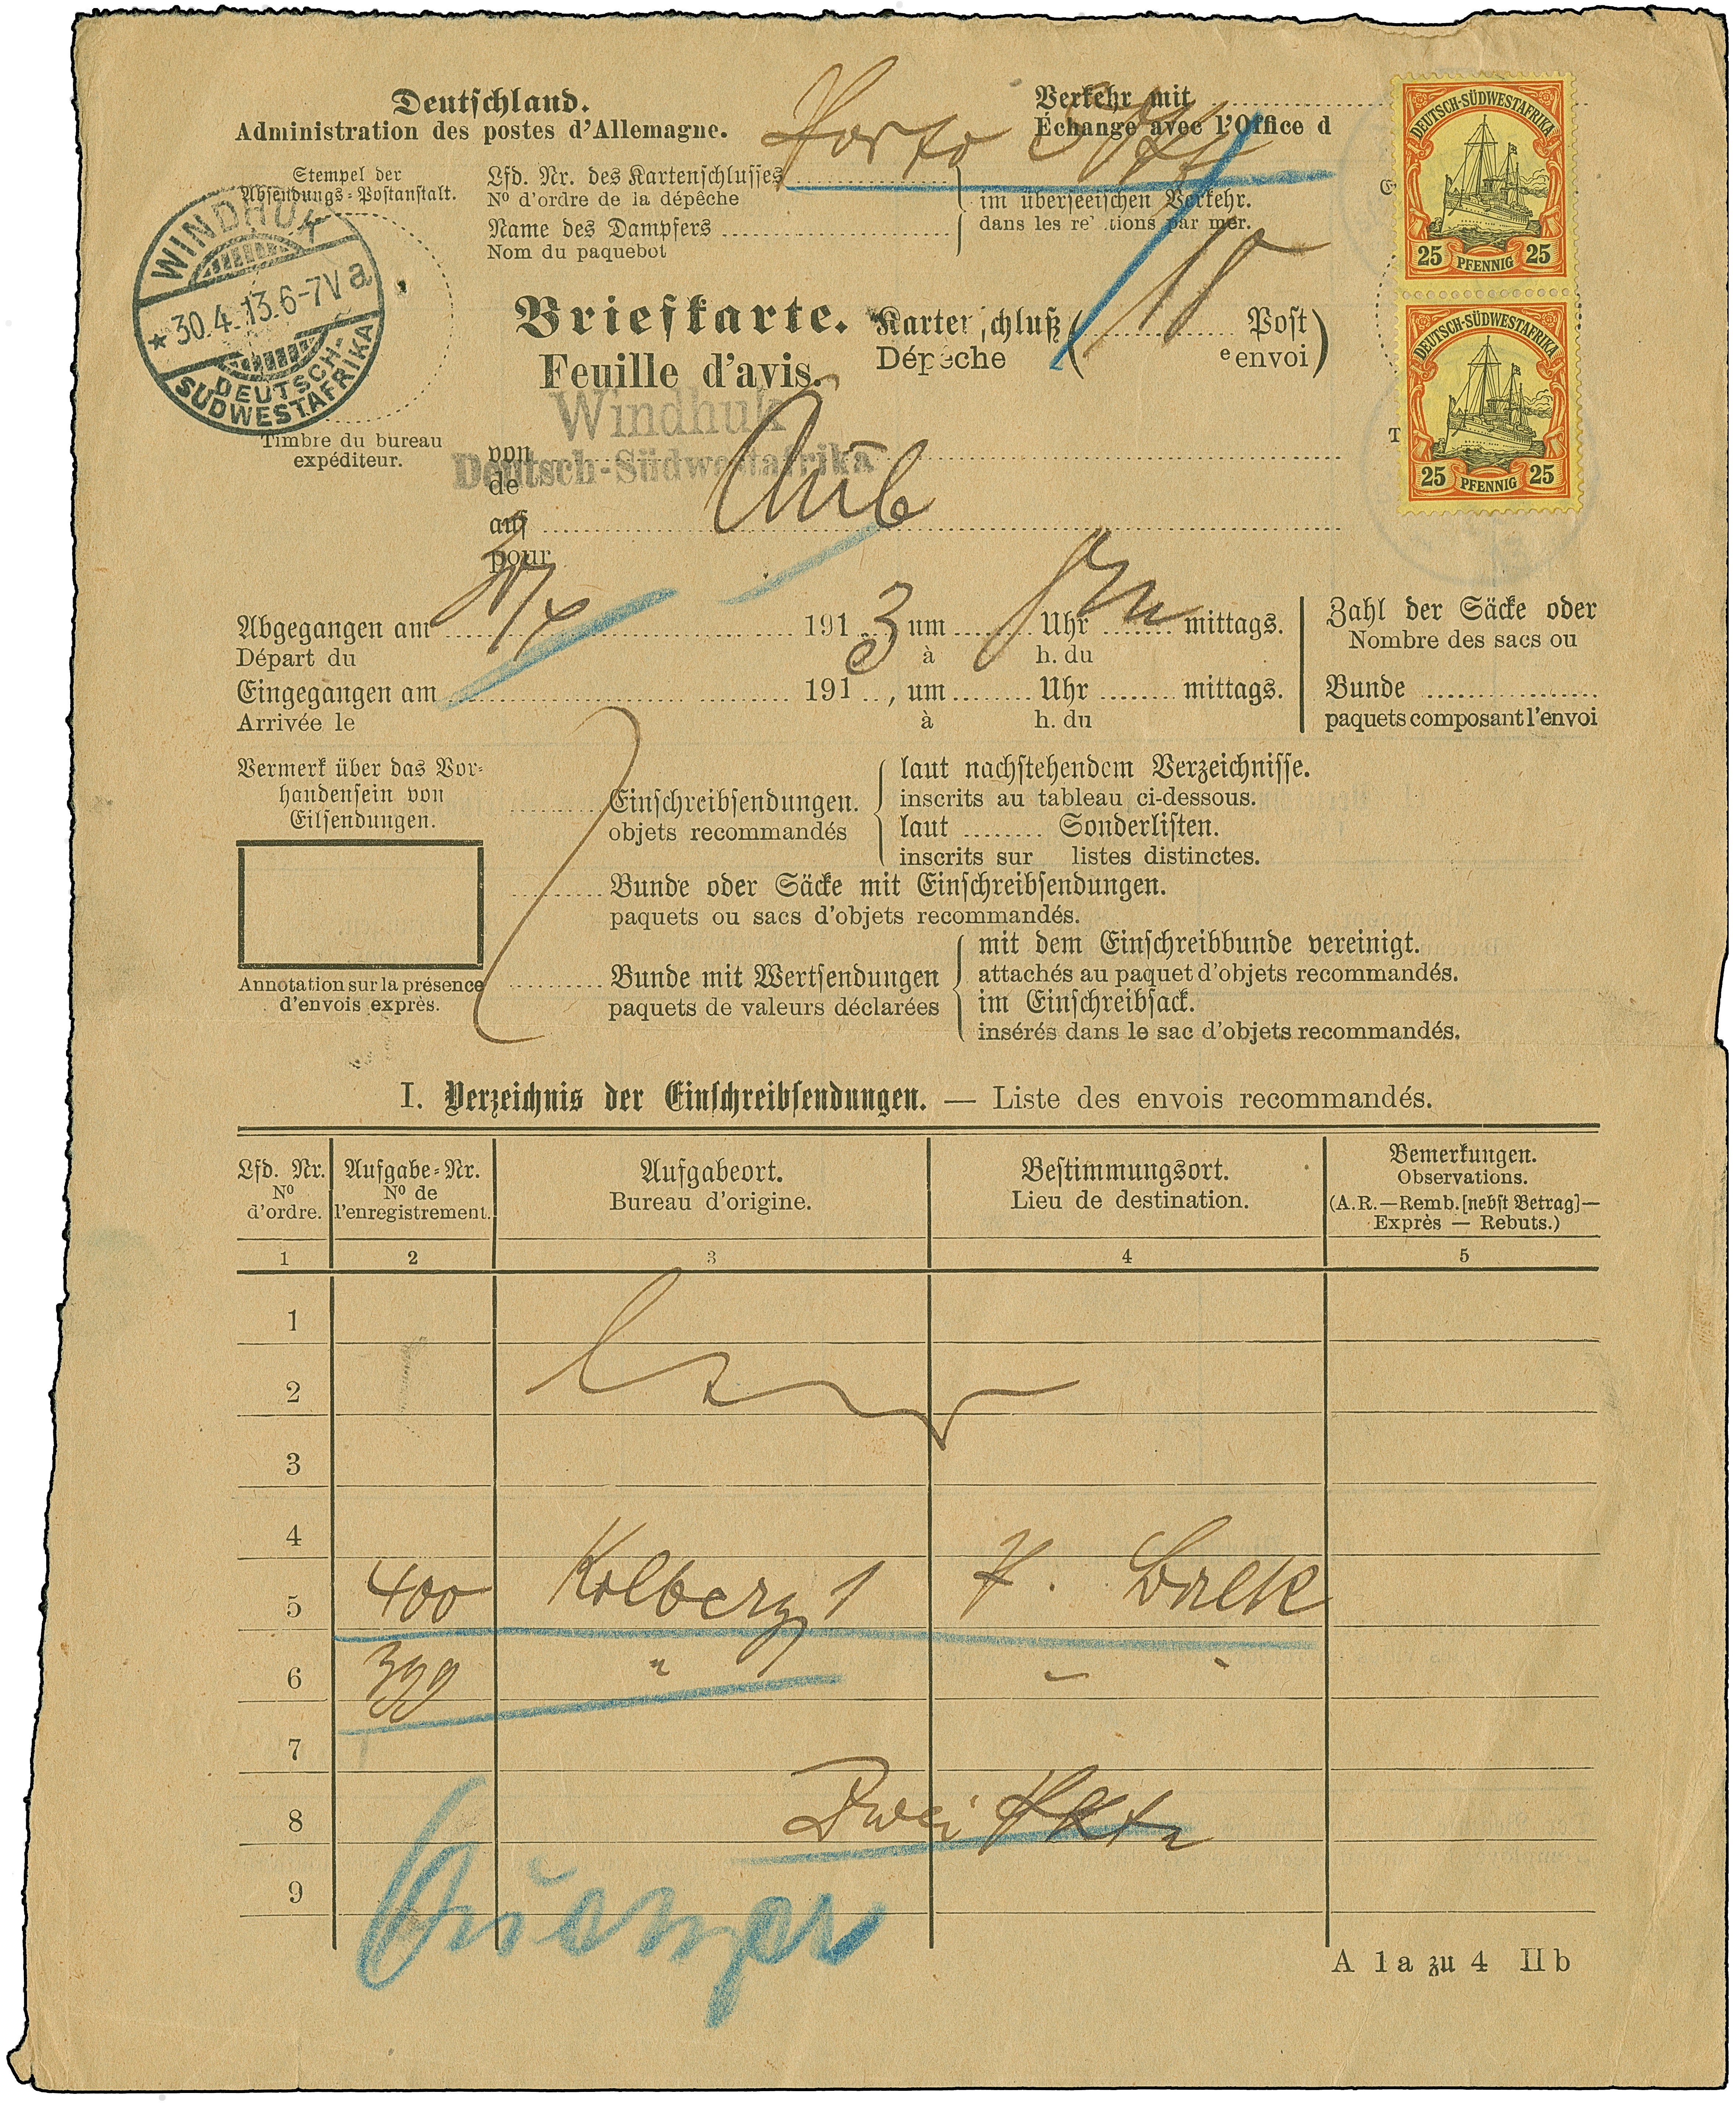 Deutschland.
Administration des postes d'Allemagne.
Porto
Verkehr mit
Échange avec l'Office d
Stempel der
Absendungs-Postanstalt.
WINDHUK
* 30.4.13.6-7V a
DEUTSCH-
SÜDWESTAFRIKA
Timbre du bureau
expéditeur.
Lfd. Nr. des Kartenschlusses
N° d'ordre de la dépêche
Name des Dampfers
Nom du paquebot
im überseeischen Verkehr.
dans les re tions par mer.
DEUTSCH-SÜDWESTAFRIKA
25 PFENNIG 25
DEUTSCH-SÜDWESTAFRIKA
25 PFENNIG 25
Briefkarte.
Feuille d'avis.
Karten schluß ( Post )
Dépeche ( e envoi )
Windhuk
Deutsch-Südwestafrika
von
de
auf Aub
pour
Abgegangen am 191 3 um Uhr mittags.
Départ du à h. du
Eingegangen am 191 , um Uhr mittags.
Arrivée le à h. du
Zahl der Säcke oder
Nombre des sacs ou
Bunde
paquets composant l'envoi
Vermerk über das Vor-
handensein von
Eilsendungen.
Annotation sur la présence
d'envois exprès.
Einschreibsendungen.
objets recommandés
laut nachstehendem Verzeichnisse.
inscrits au tableau ci-dessous.
laut Sonderlisten.
inscrits sur listes distinctes.
Bunde oder Säcke mit Einschreibsendungen.
paquets ou sacs d'objets recommandés.
Bunde mit Wertsendungen
paquets de valeurs déclarées
mit dem Einschreibbunde vereinigt.
attachés au paquet d'objets recommandés.
im Einschreibsack.
insérés dans le sac d'objets recommandés.
I. Verzeichnis der Einschreibsendungen. — Liste des envois recommandés.
Lfd. Nr.
N°
d'ordre.
Aufgabe-Nr.
N° de
l'enregistrement.
Aufgabeort.
Bureau d'origine.
Bestimmungsort.
Lieu de destination.
Bemerkungen.
Observations.
(A.R.—Remb. [nebst Betrag]—
Exprès — Rebuts.)
1 2 3 4 5
1
2
3
4
5 400 Kolberg 1
6 399 "
7
8 Zwei
9
A 1a zu 4 II b